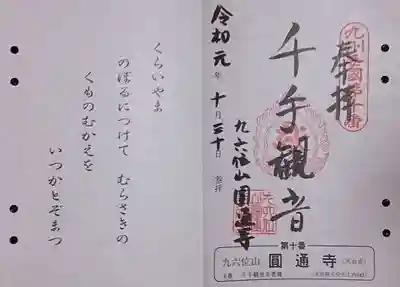 九州西國第十番
奉拝
千手觀音
九六位山圓通寺
令和元年十月三十日
参拝
第十番
九六位山 圓通寺
くらいやま
のぼるにつけて むらさきの
くものむかえを
いつかとぞまつ